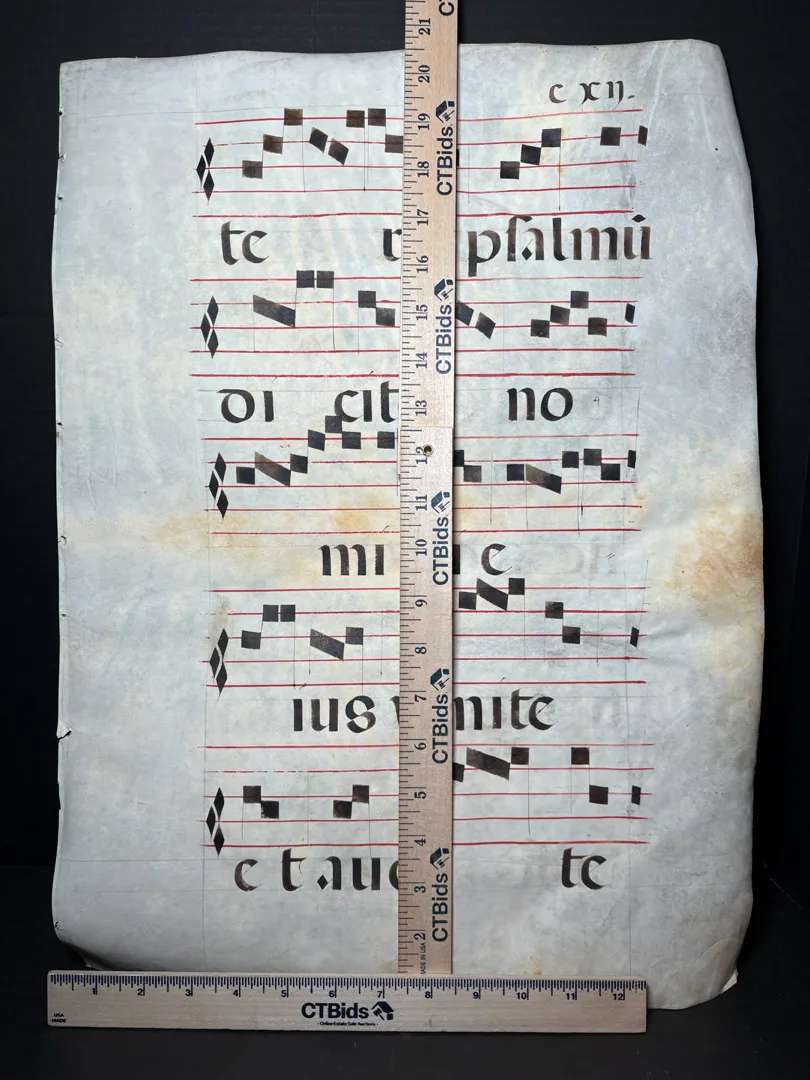 c xij.
te psalmū
di cit no
mi e
ius nite
et aue te
21
20
19
CTBids
18
17
16
15
CTBids
14
13
12
11
CTBids
10
9
8
7
CTBids
6
5
4
CTBids
3
2
MADE IN USA
1 2 3 4 5 6 7 8 9 10 11 12
USA MADE
CTBids
- Online Estate Sale Auctions -